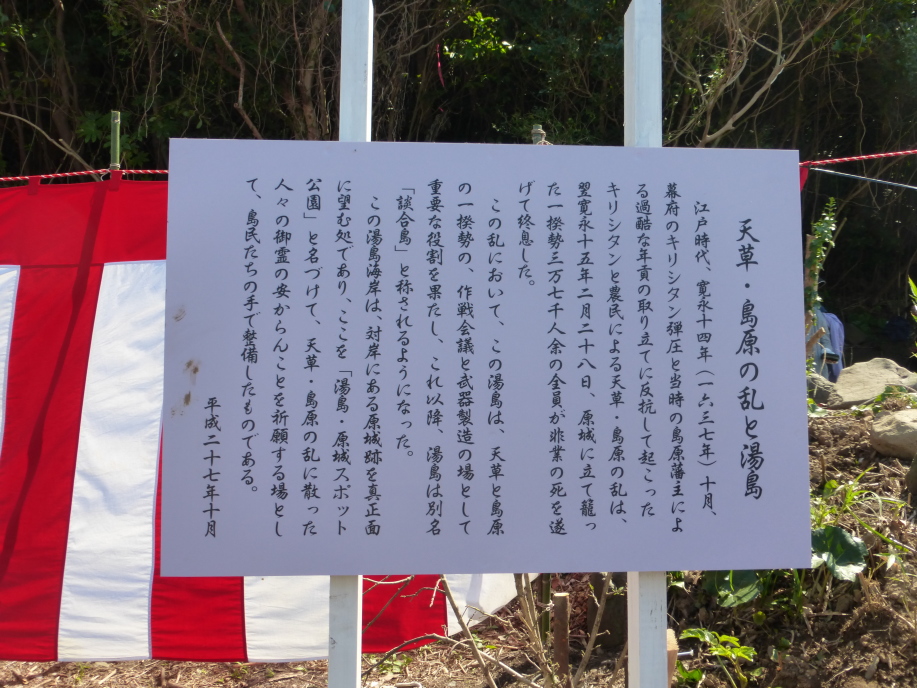 天草・島原の乱と湯島
江戸時代、寛永十四年（一六三七年）十月、
幕府のキリシタン弾圧と当時の島原藩主によ
る過酷な年貢の取り立てに反抗して起こった
キリシタンと農民による天草・島原の乱は、
翌寛永十五年二月二十八日、原城に立て籠っ
た一揆勢三万七千人余の全員が非業の死を遂
げて終息した。
この乱において、この湯島は、天草と島原
の一揆勢の、作戦会議と武器製造の場として
重要な役割を果たし、これ以降、湯島は別名
「談合島」と称されるようになった。
この湯島海岸は、対岸にある原城跡を真正面
に望む処であり、ここを「湯島・原城スポット
公園」と名づけて、天草・島原の乱に散った
人々の御霊の安からんことを祈願する場とし
て、島民たちの手で整備したものである。
平成二十七年十月